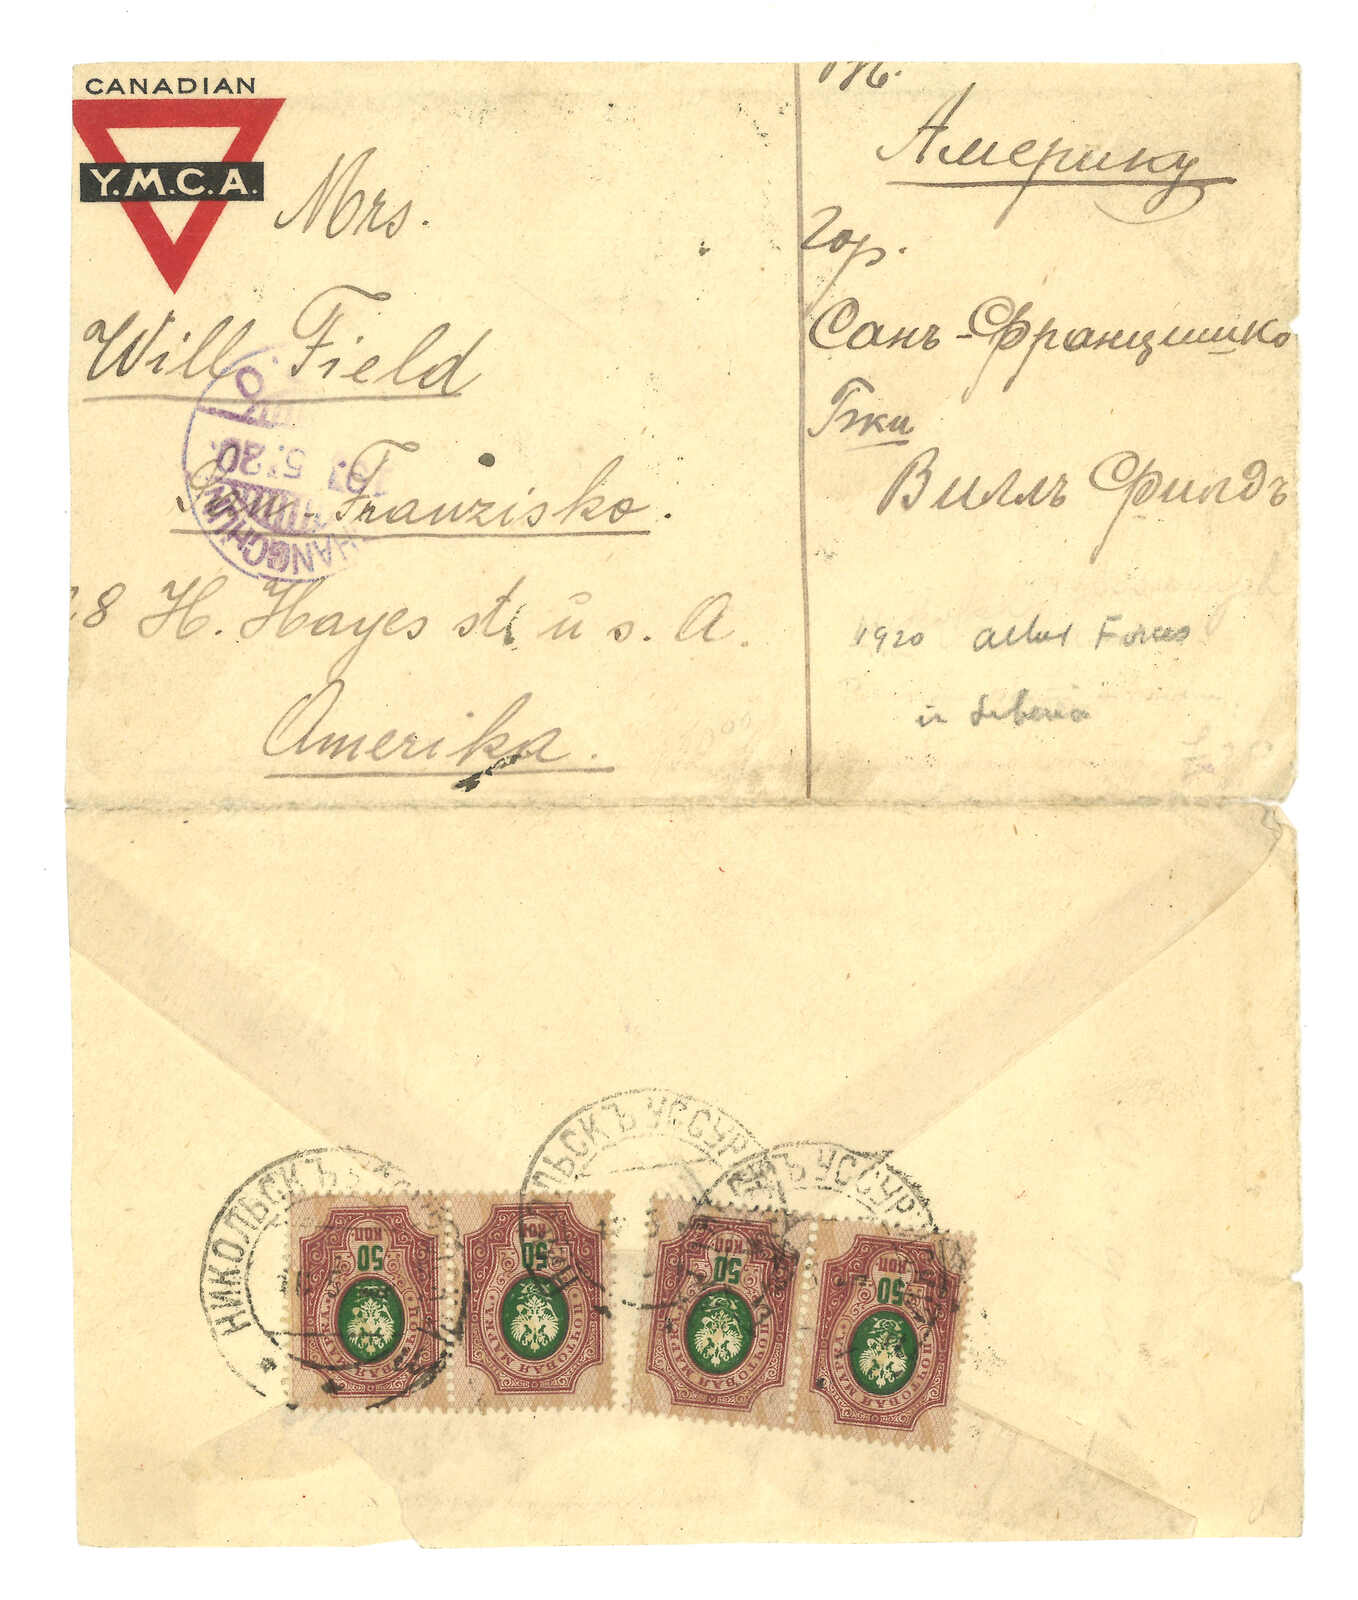 CANADIAN
Y.M.C.A.
Mrs.
Will Field
San-Franzisko.
8 H. Hayes st. u s. A.
Amerika.
Америку
Гор.
Санъ-Францишко
Гжи
Виллъ Фильдъ
1920 Allied Forces
in Siberia
CHANGCHUN
5.20
НИКОЛЬСКЪ УСС
ЛЬСКЪ УССУР
Ъ УССУР
50 КОП.
ПОЧТОВАЯ МАРКА
50 КОП.
ПОЧТОВАЯ МАРКА
50 КОП.
ПОЧТОВАЯ МАРКА
50 КОП.
ПОЧТОВАЯ МАРКА